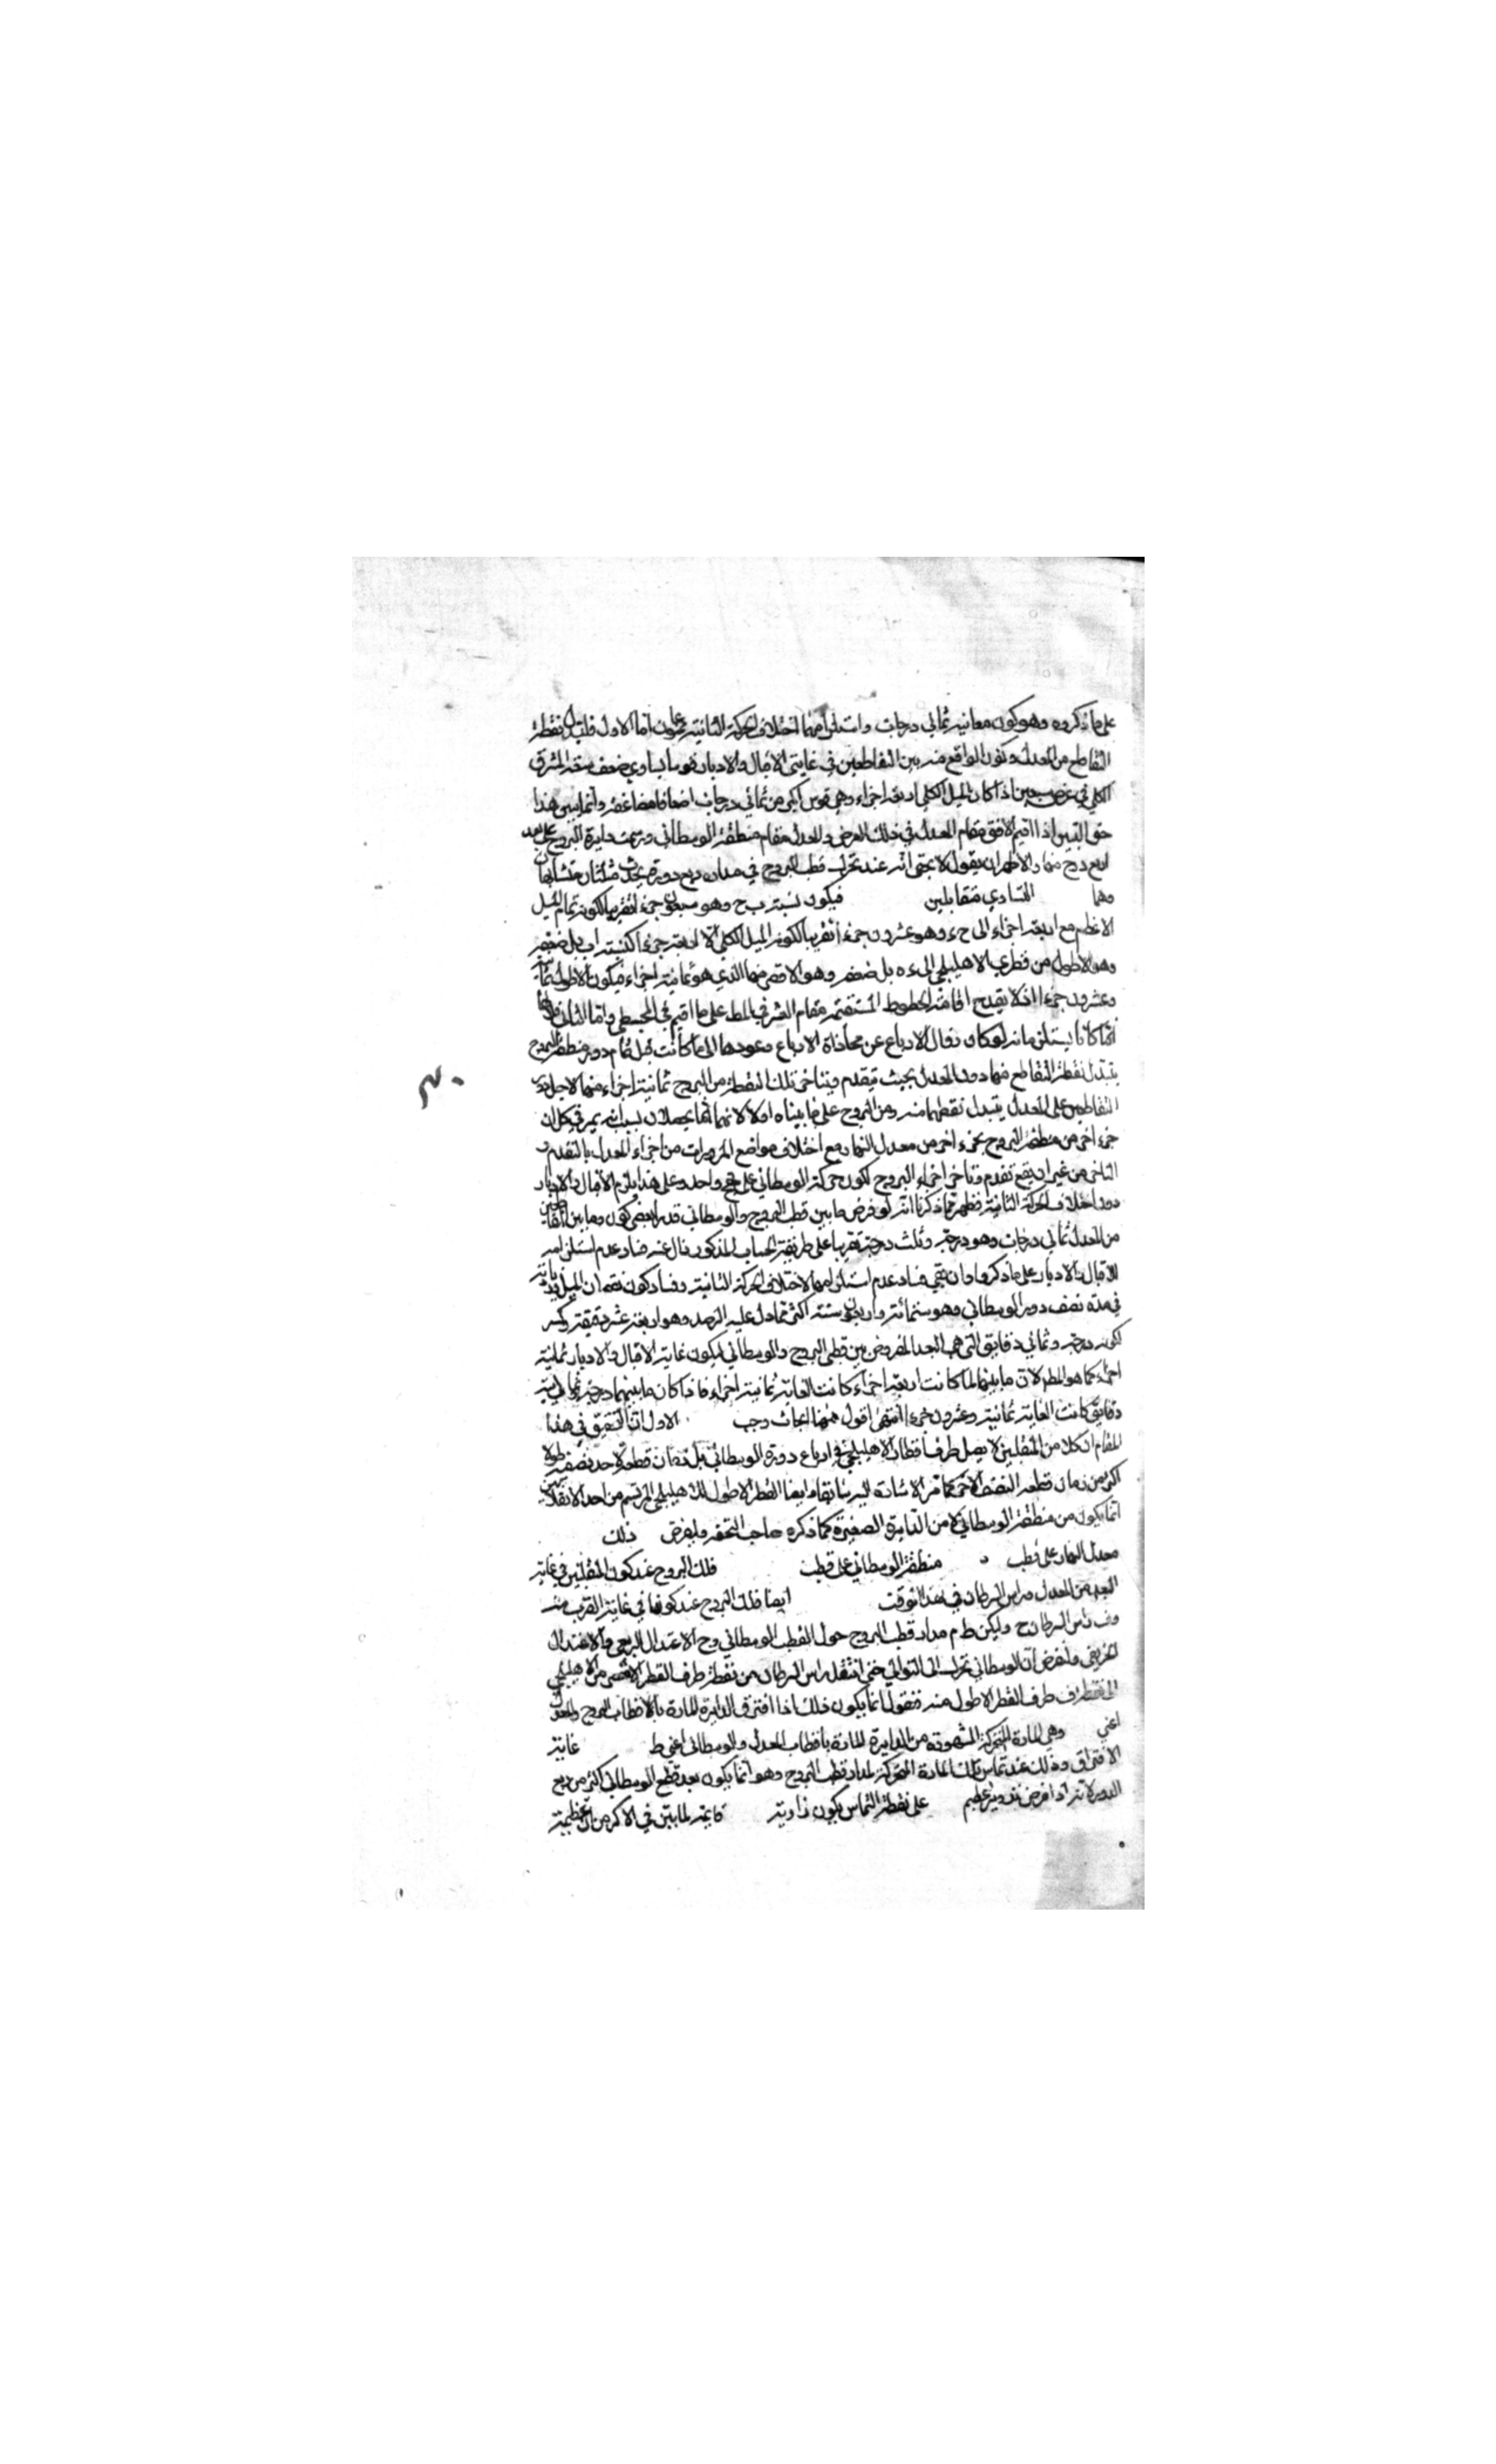 على ما ذكروه وهو كون معانيه ثماني درجات واستلزامهما اختلاف الحركة الثانية اما الاول فلتبدل نقطة
التقاطع من المعدل وكون الواقع منه بين التقاطعين في غايتي الاقبال والادبار قوسا يساوي ضعف سعة المشرق
الكلي في عرض اذا كان الميل الكلي اربعة اجزاء وهي قوس اكبر من ثماني درجات اضعافا مضاعفة وانما يتبين هذا
حق التبين اذا اقيم الافق مقام المعدل في ذلك العرض والمعدل مقام منطقة الوسطاني ورسمت دايرة البروج على بعد
اربع درج منها والاظهر ان يقول لا يخفى انه عند تحرك قطب البروج في مداره ربع دورة يحدث مثلثان متشابهان
وهما التساوي متقابلين فيكون نسبة ب ح وهو سبعون جزءا تقريبا لكونه تمام الميل
الاعظم مع اربعة اجزاء الى ح ء وهو عشرون جزءا تقريبا لكونه الميل الكلي الا اربعة جزء كنسبة ا ب بل ضعفه
وهو الاطول من قطري الاهليلجي الى ء ه بل ضعفه وهو الاقصر منهما الذي هو ثمانية اجزاء فيكون الاطول ثمانية
وعشرون جزءا اذ لا يقدح اقامة الخطوط المستقيمة مقام القسي في المطلع على ما اقيم في المجسطي واما الثاني فلانها
انما كانا يستلزمانه لو كان زوال الارباع عن محاذاة الارباع وعودها الى ما كانت قبل تمام دورة منطقة البروج
يتبدل نقطة التقاطع منها دون المعدل بحيث يتقدم ويتاخر تلك النقطة من البروج ثمانية اجزاء منها لاجل
التقاطعين على المعدل يتبدل نقطهما منه ومن البروج على ما بيناه اولا لانهما انما يحصلان بسبب انه يمر في كل ان
جزء اخر من منطقة البروج بجزء اخر من معدل النهار مع اختلاف مواضع المرورات من اجزاء المعدل بالتقدم و
التاخر من غير ان يقع تقدم وتاخر اجزاء البروج لكون حركة الوسطاني على نهج واحد وعلى هذا يلزم الاقبال والادبار
دون اختلاف الحركة الثانية فظهر مما ذكرنا انه لو فرض ما بين قطب البروج والوسطاني قدرا يفضي كون وما بين التقاطعين
من المعدل ثماني درجات وهو درجة وثلث درجة تقريبا على طريقة الحساب المذكور زال عنه فساد عدم استلزامه
للاقبال والادبار على ما ذكروا وان بقي فساد عدم استلزامهما لاختلاف الحركة الثانية وفساد كون نقصان الميل وزيادته
في مدة نصف دورة الوسطاني وهو ستمائة واربعون سنة اكثر مما دل عليه الرصد وهو اربعة عشر دقيقة وكسر
لكونه درجة وثماني دقايق التي هي البعد المفروض بين قطبي البروج والوسطاني ليكون غاية الاقبال والادبار ثمانية
اجزاء كما هو المطلع لان ما بينهما لما كانت اربعة اجزاء كانت الغاية ثمانية اجزاء فاذا كان ما بينهما درجة وثمانية
دقايق كانت الغاية ثمانية وعشرون جزءا انتهى اقول ههنا ابحاث وجب الاول ان التحقيق في هذا
المقام ان كلا من المنقلبين لا يصل طرف اقطار الاهليلجي في ارباع دورة الوسطاني بل زمان قطعه لاحد نصفيه طولا
اكثر من زمان قطعه النصف الاخر كما مر الاشارة اليه سابقا وايضا القطر الاطول للاهليلجي المرتسم من احد الانقلابين
انما يكون من منطقة الوسطاني لا من الدايرة الصغيرة كما ذكره صاحب التحفه وليفرض ذلك
معدل النهار على قطب د منطقة الوسطاني على قطب فلك البروج عند كون المنقلبين في غاية
البعد من المعدل وراس السرطان في هذا الوقت ايضا فلك البروج عند كونهما في غاية القرب منه
وف راس السرطان ح وليكن ط م مدار قطب البروج حول القطب الوسطاني وح الاعتدال الربيعي والاعتدال
الخريفي ولنفرض ان الوسطاني تحرك الى التوالي حتى انتقل راس السرطان من نقطة طرف القطر الاقصر من الاهليلجي
الى نقطة ف طرف القطر الاطول منه فنقول انما يكون ذلك اذا افترق الدايرة المارة بالاقطاب البروج والمعدل
اعني وهي المارة المتحركة المشهورة من الدايرة المارة باقطاب المعدل والوسطاني اعني ط غاية
الافتراق وذلك عند تماس تلك المارة المتحركة لمدار قطب البروج وهو انما يكون بعد قطع الوسطاني اكثر من ربع
الدورة لانه اذا فرض عظيم على نقطة التماس يكون زاوية قايمة لما بين في الاكر من ان عظيمة